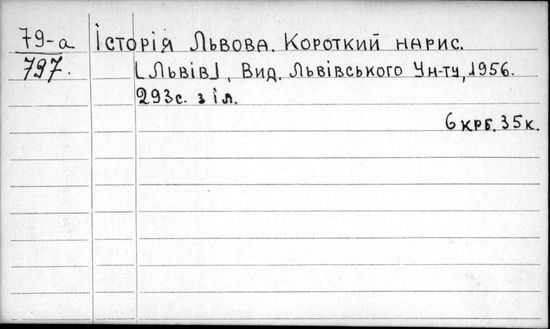 79-а Історія Львова. Короткий нарис.
797. [Львів], Вид. Львівського Ун-ту, 1956.
293с. з іл.
6 крб. 35 к.